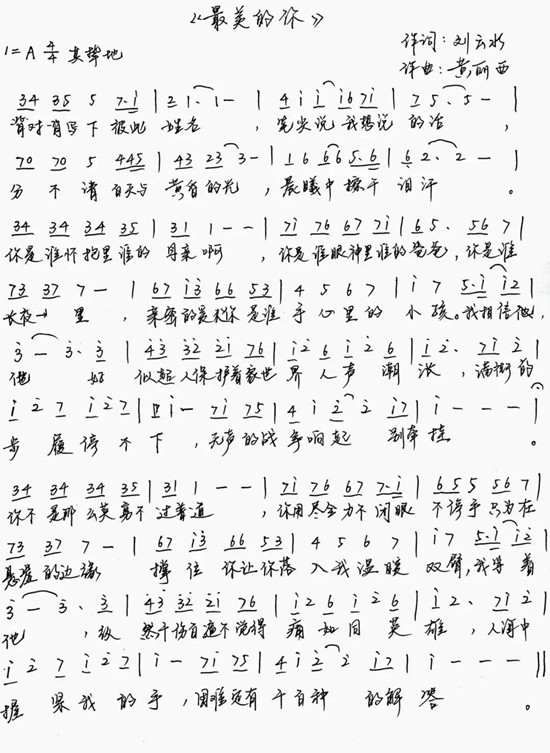 《最美的你》
1=A 4/4 真挚地
作词：刘云水
作曲：黄丽西
34 35 5 7·1 | 2 1· 1 — | 4 i i i6 7i | 7 5· 5 — |
背对背写下彼此姓名，笔尖说我想说的话，
70 70 5 445 | 43 23 3 — | 1 6 66 5·6 | 6 2· 2 — |
分不清白天与黄昏的光，晨曦中擦干泪汗。
34 34 34 35 | 31 1 — — | 7i 76 67 7i | 6 5· 56 7 |
你是谁怀抱里谁的母亲啊，你是谁眼神里谁的爸爸，你是谁
73 37 7 — | 67 i3 66 53 | 4 5 6 7 | i 7 5·i i2 |
长夜里，亲密的爱人你是谁手心里的小孩。我相信他，
3 — 3· 3 | 43 32 2i 76 | i2 6 i2 6 | i 2· 7i 2 |
他好似超人保护着我世界人声潮涨，满街的
i 2 7 i 2 7 | i — 7i 75 | 4 i 2 2 i7 | i — — — |
步履停不下，无声的战争响起别牵挂。
34 34 34 35 | 31 1 — — | 7i 76 67 7·i | 6 5 5 56 7 |
你不是那么英勇不过普通，你用尽全力不闭眼不停手只为在
73 37 7 — | 67 i3 66 53 | 4 5 6 7 | i 7 5·i i2 |
悬崖的边缘撑住你让你落入我温暖双臂，我等着
3 — 3· 3 | 43 32 2i 76 | i2 6 i2 6 | i 2· 7i 2 |
他，纵然千伤百遍不觉得痛如同英雄，人海中
i 2 7 i 2 7 | i — 7i 75 | 4 i 2 2 i7 | i — — — ||
握紧我的手，困难更有千百种的解答。